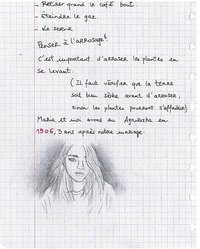 - Retirer quand le café bout.
- Eteindre le gaz.
- Le servir
Penser à l'arrosage!
C'est important d'arroser les plantes en
se levant.
(Il faut vérifier que la terre
soit bien sèche avant d'arroser,
sinon les plantes pourront s'affaiblir)
Maria et moi avons eu Agnieszka en
1906, 3 ans après notre mariage.